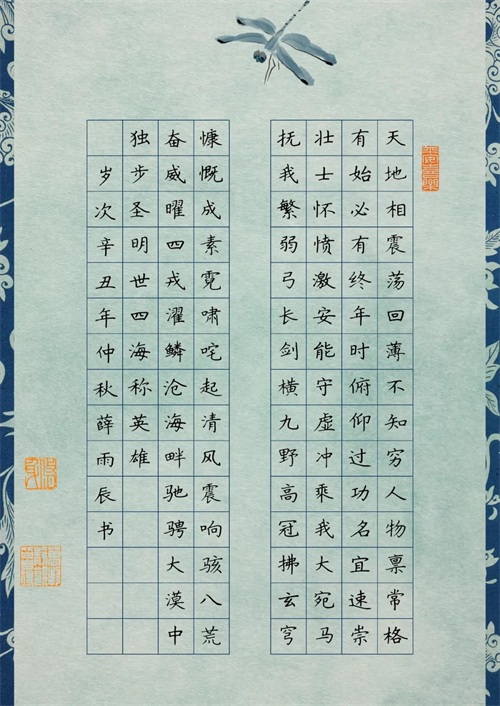 天地相震荡回薄不知穷人物禀常格
有始必有终年时俯仰过功名宜速崇
壮士怀愤激安能守虚冲乘我大宛马
抚我繁弱弓长剑横九野高冠拂玄穹
慷慨成素霓啸咤起清风震响骇八荒
奋威曜四戎濯鳞沧海畔驰骋大漠中
独步圣明世四海称英雄
岁次辛丑年仲秋薛雨辰书